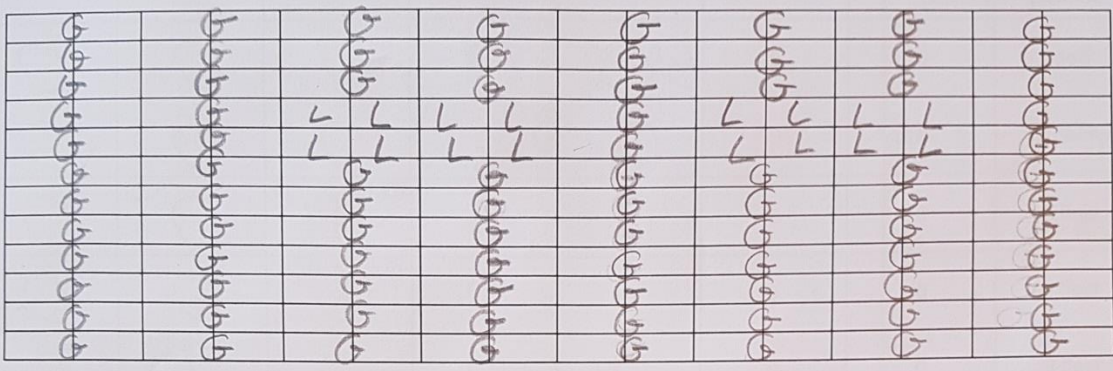 G G G G G G G G
G G G G G G G G
G G G G G G G G
G G L L L L G L L L L G
G G L L L L G L L L L G
G G G G G G G G
G G G G G G G G
G G G G G G G G
G G G G G G G G
G G G G G G G G
G G G G G G G G
G G G G G G G G